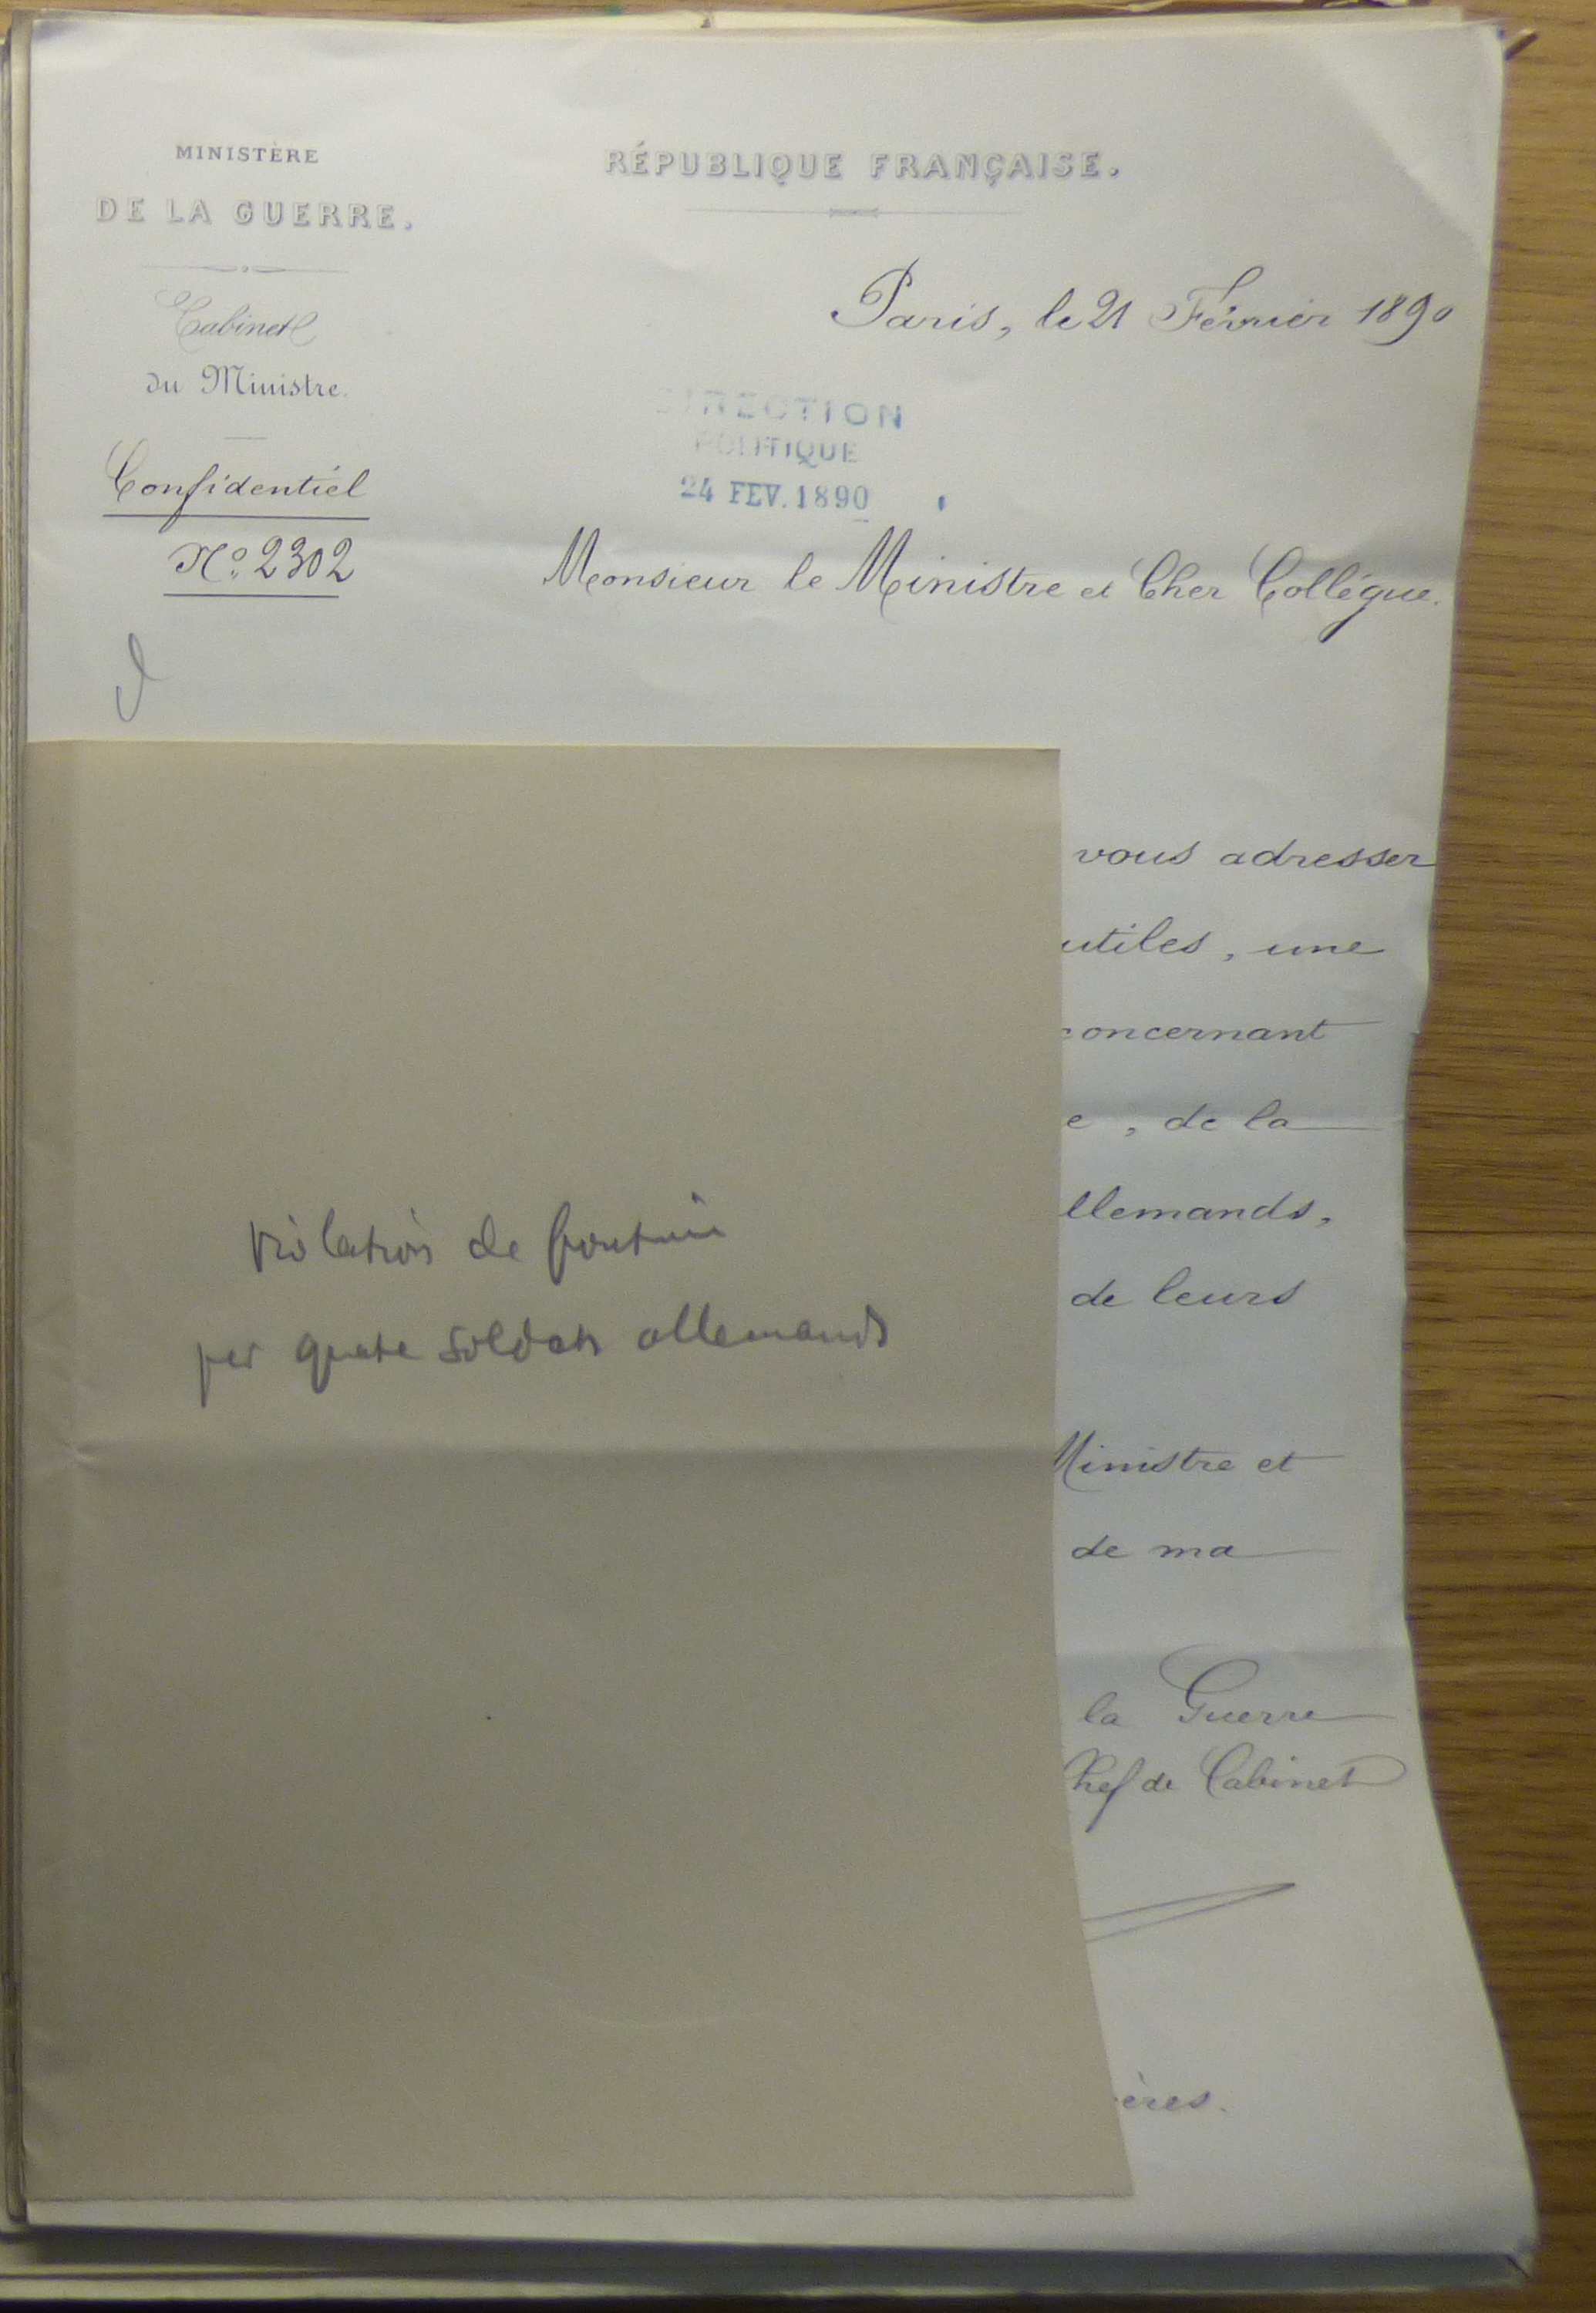 MINISTÈRE
DE LA GUERRE.
Cabinet
du Ministre.
Confidentiel
No. 2302
RÉPUBLIQUE FRANÇAISE.
Paris, le 21 Février 1890
DIRECTION
POLITIQUE
24 FEV. 1890
Monsieur le Ministre et Cher Collégue.
vous adresser
utiles, une
concernant
e, de la
llemands,
de leurs
Ministre et
de ma
la Guerre
Chef de Cabinet
ères.
Violation de frontière
par quatre soldats allemands